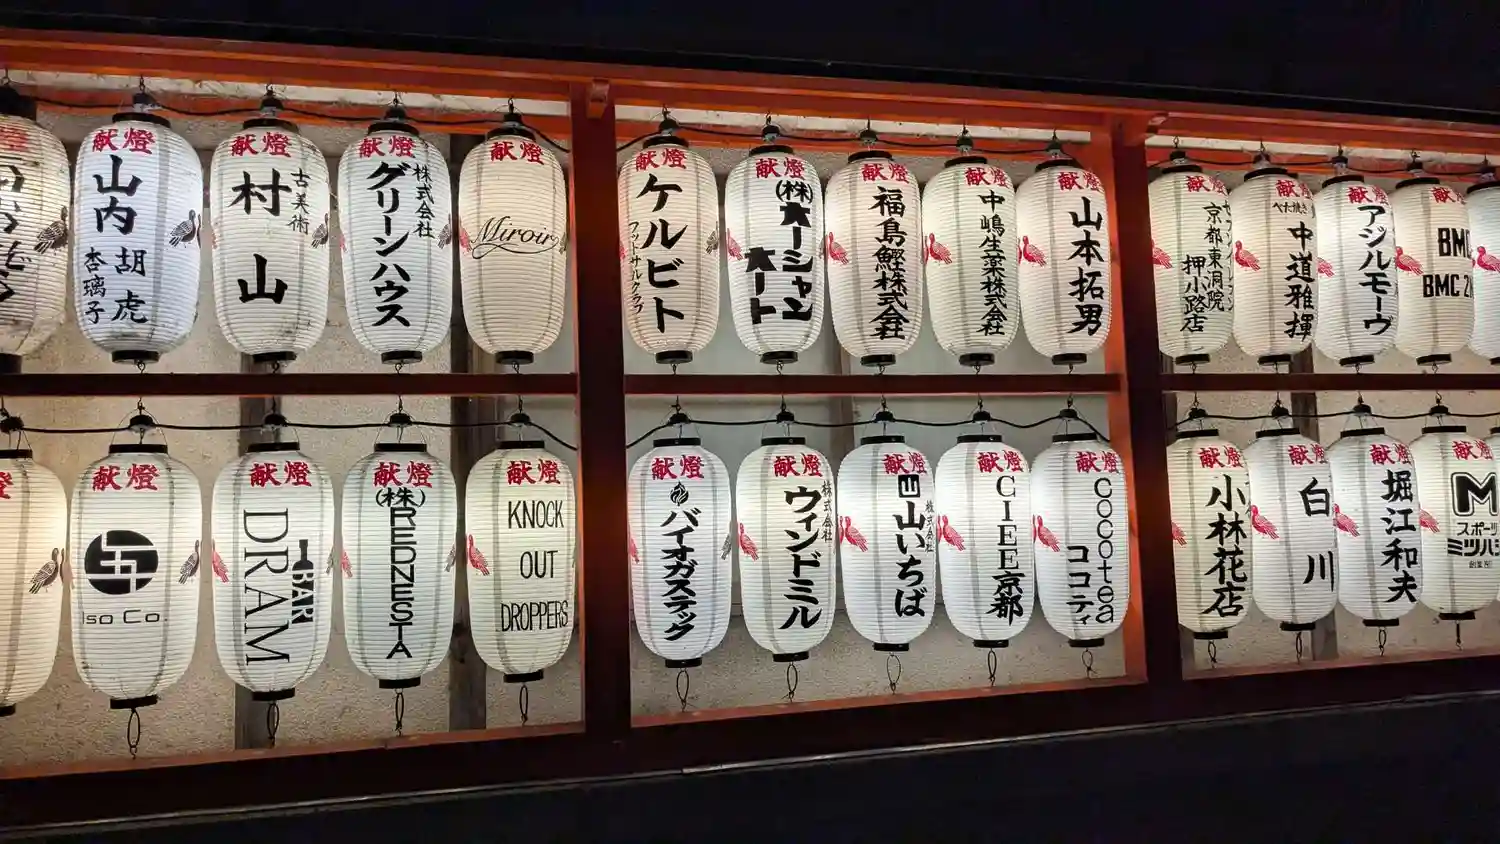 献燈
山内
胡虎
杏璃子
献燈
古美術
村山
献燈
株式会社
グリーンハウス
献燈
Miroir
献燈
ケルビト
フットサルクラブ
献燈
(株)
オーシャン
オート
献燈
福島鰹株式会社
献燈
中嶋生薬株式会社
献燈
山本拓男
献燈
セブンイレブン
京都東洞院
押小路店
献燈
べた焼き
中道雅揮
献燈
アジルモーヴ
献燈
BMC
BMC 2
献燈
Iso Co.
献燈
BAR
DRAM
献燈
(株)
REDNESTA
献燈
KNOCK
OUT
DROPPERS
献燈
バイオガステック
献燈
株式会社
ウィンドミル
献燈
株式会社
山いちば
献燈
CIEE京都
献燈
cocotea
ココティ
献燈
小林花店
献燈
白川
献燈
堀江和夫
献燈
M
スポーツ
ミツハシ